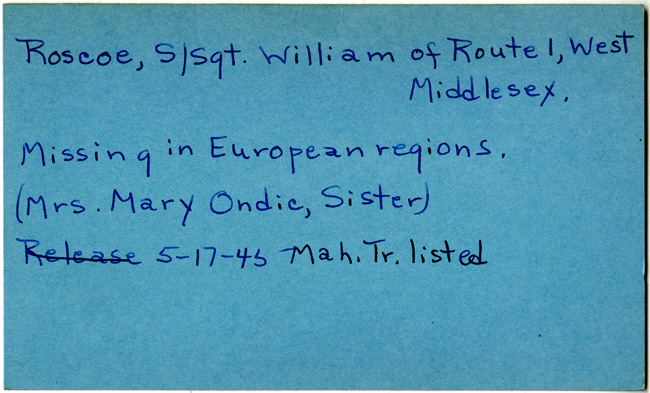 Roscoe, S/Sgt. William of Route 1, West
Middlesex.
Missing in European regions.
(Mrs. Mary Ondic, Sister)
Release 5-17-45 Mah. Tr. listed